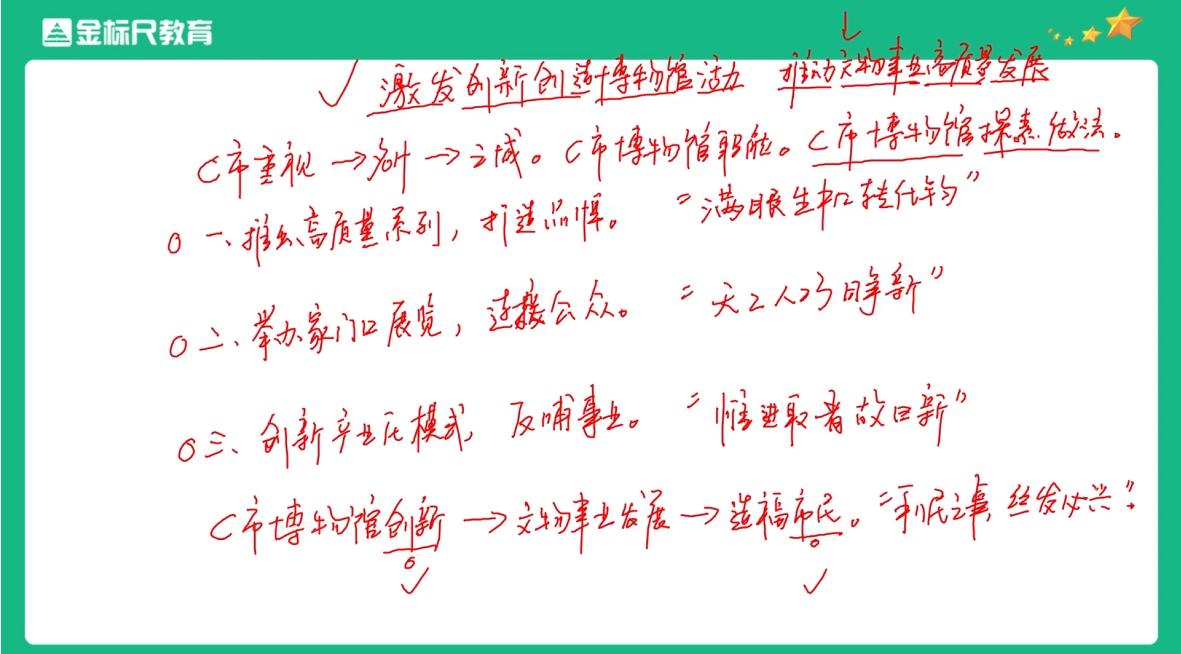 金标尺教育
激发创新创造博物馆活动 推动文物事业高质量发展
C市重视→ →之城。C市博物馆职能。C市博物馆探索做法。
一、推出高质量系列，打造品牌。"满眼生机转化钧"
二、举办家门口展览，连接公众。"天工人巧日争新"
三、创新产业化模式，反哺事业。"惟进取者故日新"
C市博物馆创新→文物事业发展→造福市民。"利民之事，丝发必兴"